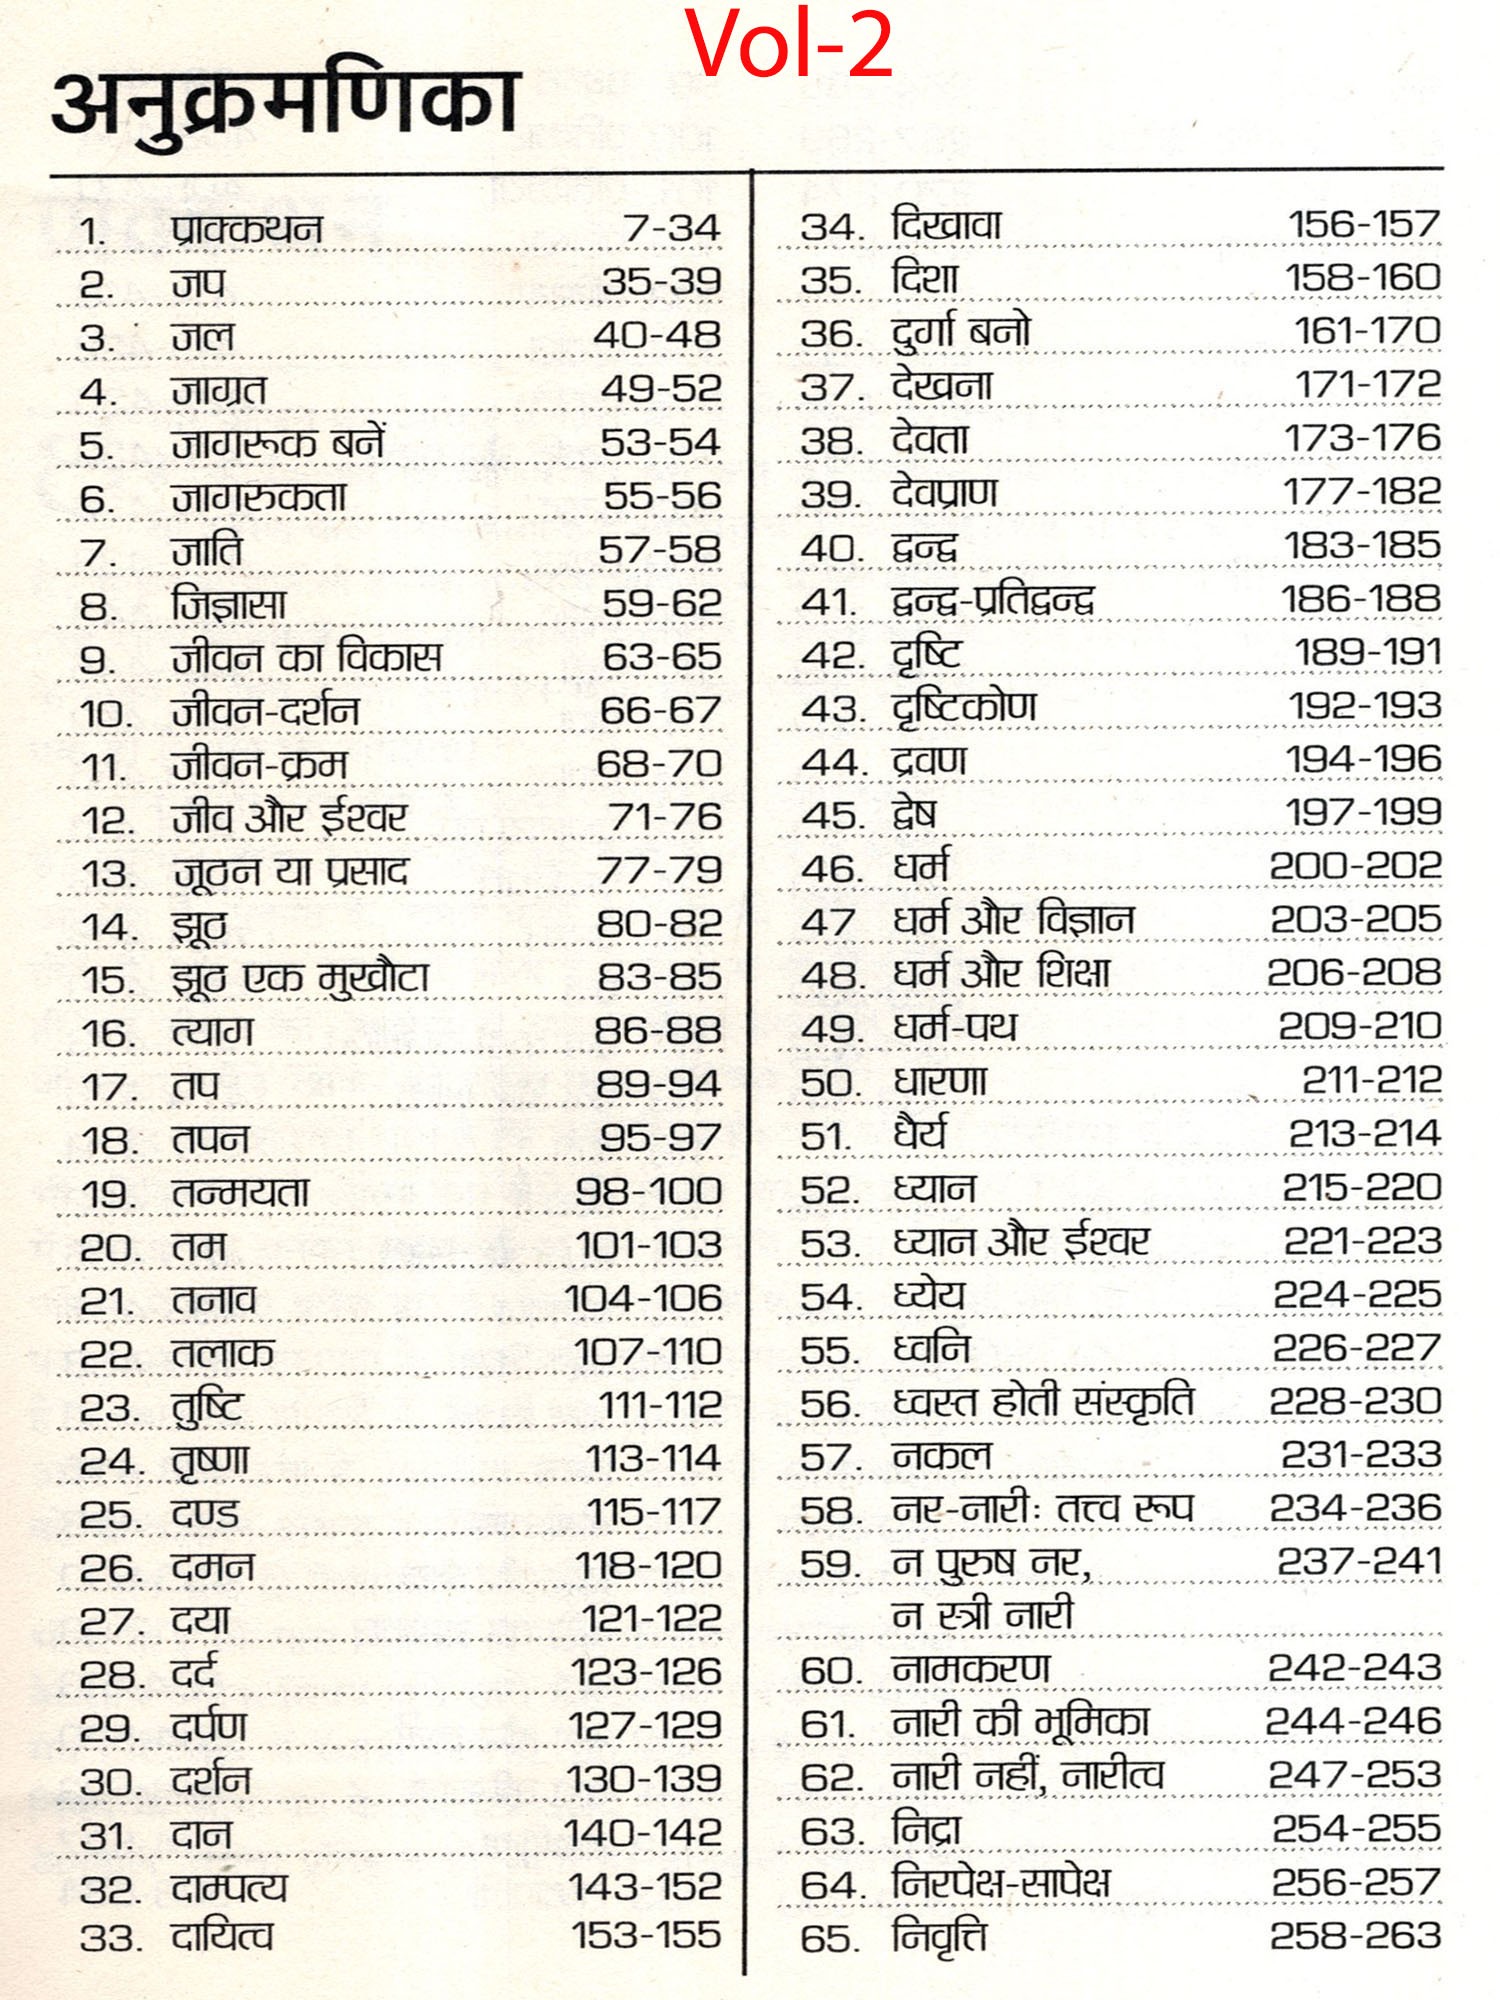 Vol-2
अनुक्रमणिका
1. प्राक्कथन 7-34
2. जप 35-39
3. जल 40-48
4. जाग्रत 49-52
5. जागरूक बनें 53-54
6. जागरुकता 55-56
7. जाति 57-58
8. जिज्ञासा 59-62
9. जीवन का विकास 63-65
10. जीवन-दर्शन 66-67
11. जीवन-क्रम 68-70
12. जीव और ईश्वर 71-76
13. जूठन या प्रसाद 77-79
14. झूठ 80-82
15. झूठ एक मुखौटा 83-85
16. त्याग 86-88
17. तप 89-94
18. तपन 95-97
19. तन्मयता 98-100
20. तम 101-103
21. तनाव 104-106
22. तलाक 107-110
23. तुष्टि 111-112
24. तृष्णा 113-114
25. दण्ड 115-117
26. दमन 118-120
27. दया 121-122
28. दर्द 123-126
29. दर्पण 127-129
30. दर्शन 130-139
31. दान 140-142
32. दाम्पत्य 143-152
33. दायित्व 153-155
34. दिखावा 156-157
35. दिशा 158-160
36. दुर्गा बनो 161-170
37. देखना 171-172
38. देवता 173-176
39. देवप्राण 177-182
40. द्वन्द्व 183-185
41. द्वन्द्व-प्रतिद्वन्द्व 186-188
42. दृष्टि 189-191
43. दृष्टिकोण 192-193
44. द्रवण 194-196
45. द्वेष 197-199
46. धर्म 200-202
47 धर्म और विज्ञान 203-205
48. धर्म और शिक्षा 206-208
49. धर्म-पथ 209-210
50. धारणा 211-212
51. धैर्य 213-214
52. ध्यान 215-220
53. ध्यान और ईश्वर 221-223
54. ध्येय 224-225
55. ध्वनि 226-227
56. ध्वस्त होती संस्कृति 228-230
57. नकल 231-233
58. नर-नारीः तत्त्व रूप 234-236
59. न पुरुष नर, 237-241
न स्त्री नारी
60. नामकरण 242-243
61. नारी की भूमिका 244-246
62. नारी नहीं, नारीत्व 247-253
63. निद्रा 254-255
64. निरपेक्ष-सापेक्ष 256-257
65. निवृत्ति 258-263